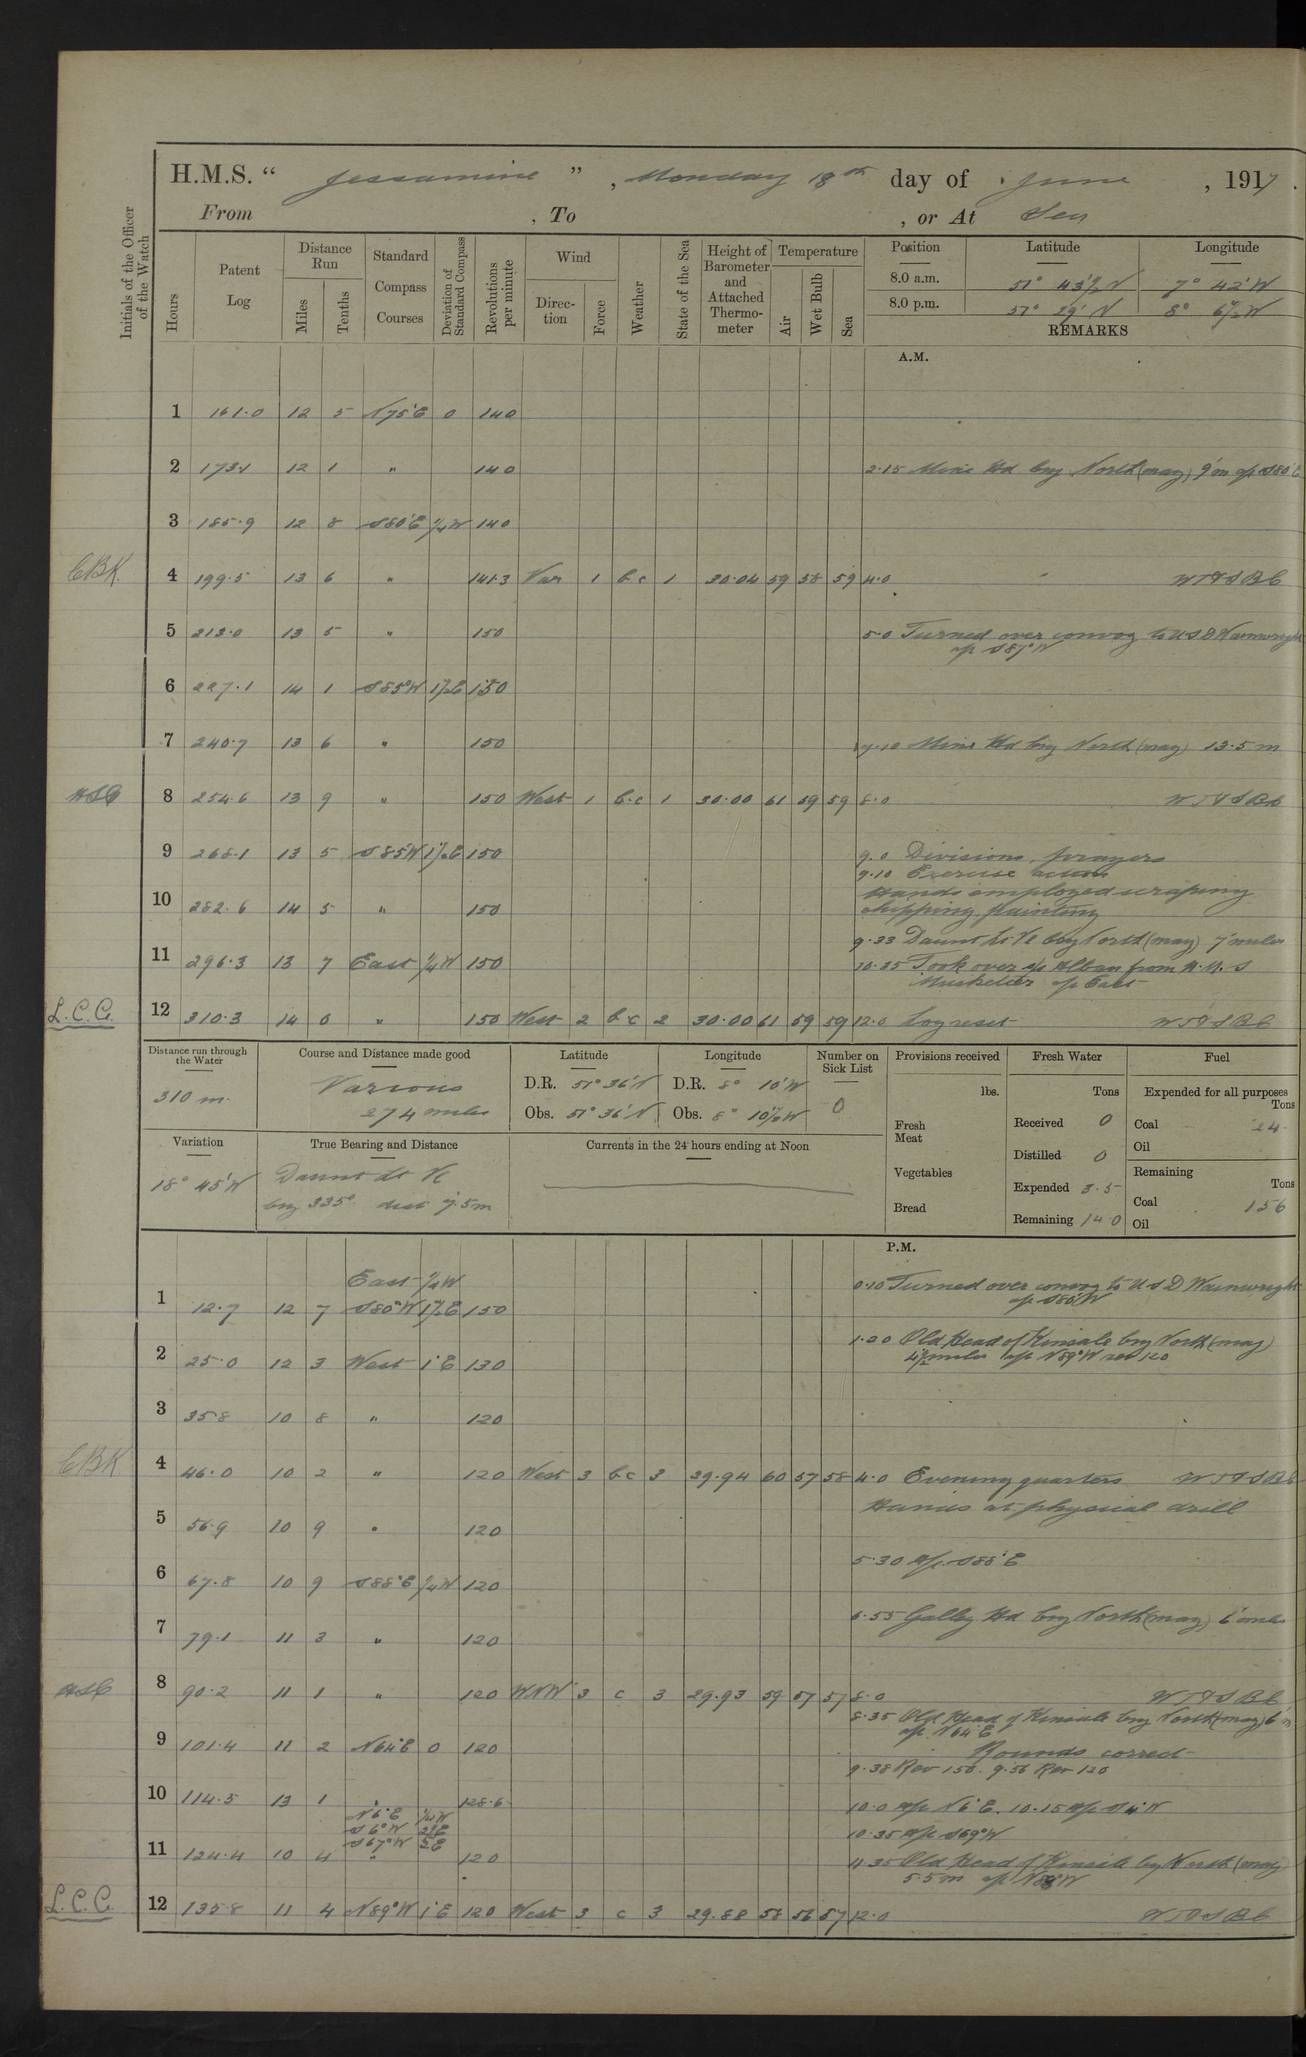 H.M.S. “ Jessamine ” , Monday 18th day of June , 1917 .
From , To , or At Sea
Initials of the Officer of the Watch
Hours
Patent Log
Distance Run
Miles
Tenths
Standard Compass Courses
Deviation of Standard Compass
Revolutions per minute
Wind
Direction
Force
Weather
State of the Sea
Height of Barometer and Attached Thermometer
Temperature
Air
Wet Bulb
Sea
Position Latitude Longitude
8.0 a.m. 51° 43½' N 7° 42' W
8.0 p.m. 29' N 8° W
REMARKS
A.M.
1 161.0 12 5 N75°E 0 140
2 173.1 12 1 " 140 2.15 Mine Hd brg North (mag) 9'm a/c S80°E
3 185.9 12 8 S80°E ¼W 140
CBK 4 199.5 13 6 " 141.3 Var 1 b.c 1 30.04 59 58 59 4.0 WTHSBC
5 213.0 13 5 " 150 5.0 Turned over convoy to USD Wainwright
a/c S87°W
6 227.1 14 1 S85°W 1½E 150
7 240.7 13 6 " 150 7.10 Mine Hd brg North (mag) 13.5 m
8 254.6 13 9 " 150 West 1 b.c 1 30.00 61 59 59 8.0
9 268.1 13 5 S85W 1½E 150 9.0 Divisions, prayers
9.10 Exercise action
Hands employed scraping
10 282.6 14 5 " 150 chipping painting
9.33 Daunt Lt Ve brg North (mag) 7 miles
11 296.3 13 7 East ¼W 150 10.35 Took over s/s Alban from H.M.S
Musketeer a/c East
L.C.C. 12 310.3 14 0 " 150 West 2 b.c 2 30.00 61 59 59 12.0 Log reset
Distance run through the Water
310 m.
Course and Distance made good
Various
274 miles
Latitude
D.R. 51° 36' N
Obs. 51° 36' N
Longitude
D.R. 8° 10' W
Obs. 8° 10½' W
Number on Sick List
0
Provisions received
lbs.
Fresh Meat
Vegetables
Bread
Fresh Water
Tons
Received 0
Distilled 0
Expended 3.5
Remaining 14.0
Fuel
Expended for all purposes
Tons
Coal 24
Oil
Remaining
Tons
Coal 156
Oil
Variation
18° 45' W
True Bearing and Distance
Daunt Lt Ve
brg 335° dist 7.5m
Currents in the 24 hours ending at Noon
P.M.
East ¼W 0.10 Turned over convoy to USD Wainwright
1 12.7 12 7 S80°W 1½E 150 a/c S80°W
1.20 Old Head of Kinsale brg North (mag)
2 25.0 12 3 West 1°E 130 4½ miles a/c N89°W rev 120
3 35.8 10 8 " 120
CBK 4 46.0 10 2 " 120 West 3 b.c 3 29.94 60 57 58 4.0 Evening quarters
Hands at physical drill
5 56.9 10 9 " 120
5.30 a/c S88°E
6 67.8 10 9 S88°E ¼W 120
6.55 Galley Hd brg North (mag) 6 miles
7 79.1 11 3 " 120
8 90.2 11 1 " 120 WNW 3 c 3 29.93 59 57 57 8.0
8.35 Old Head of Kinsale brg North (mag) 6'm
a/c N64°E
9 101.4 11 2 N64°E 0 120 Rounds correct
9.38 Rev 150. 9.56 Rev 120
10 114.5 13 1 " 128.6 10.0 a/c N6°E. 10.15 a/c
N6°E ¼W
S6°W 10.35 a/c S69°W
S67°W
11 124.4 10 4 " 120 11.35 Old Head of Kinsale brg North (mag)
5.5 m a/c
L.C.C. 12 135.8 11 4 N89°W 1°E 120 West 3 c 3 29.88 58 56 57 12.0